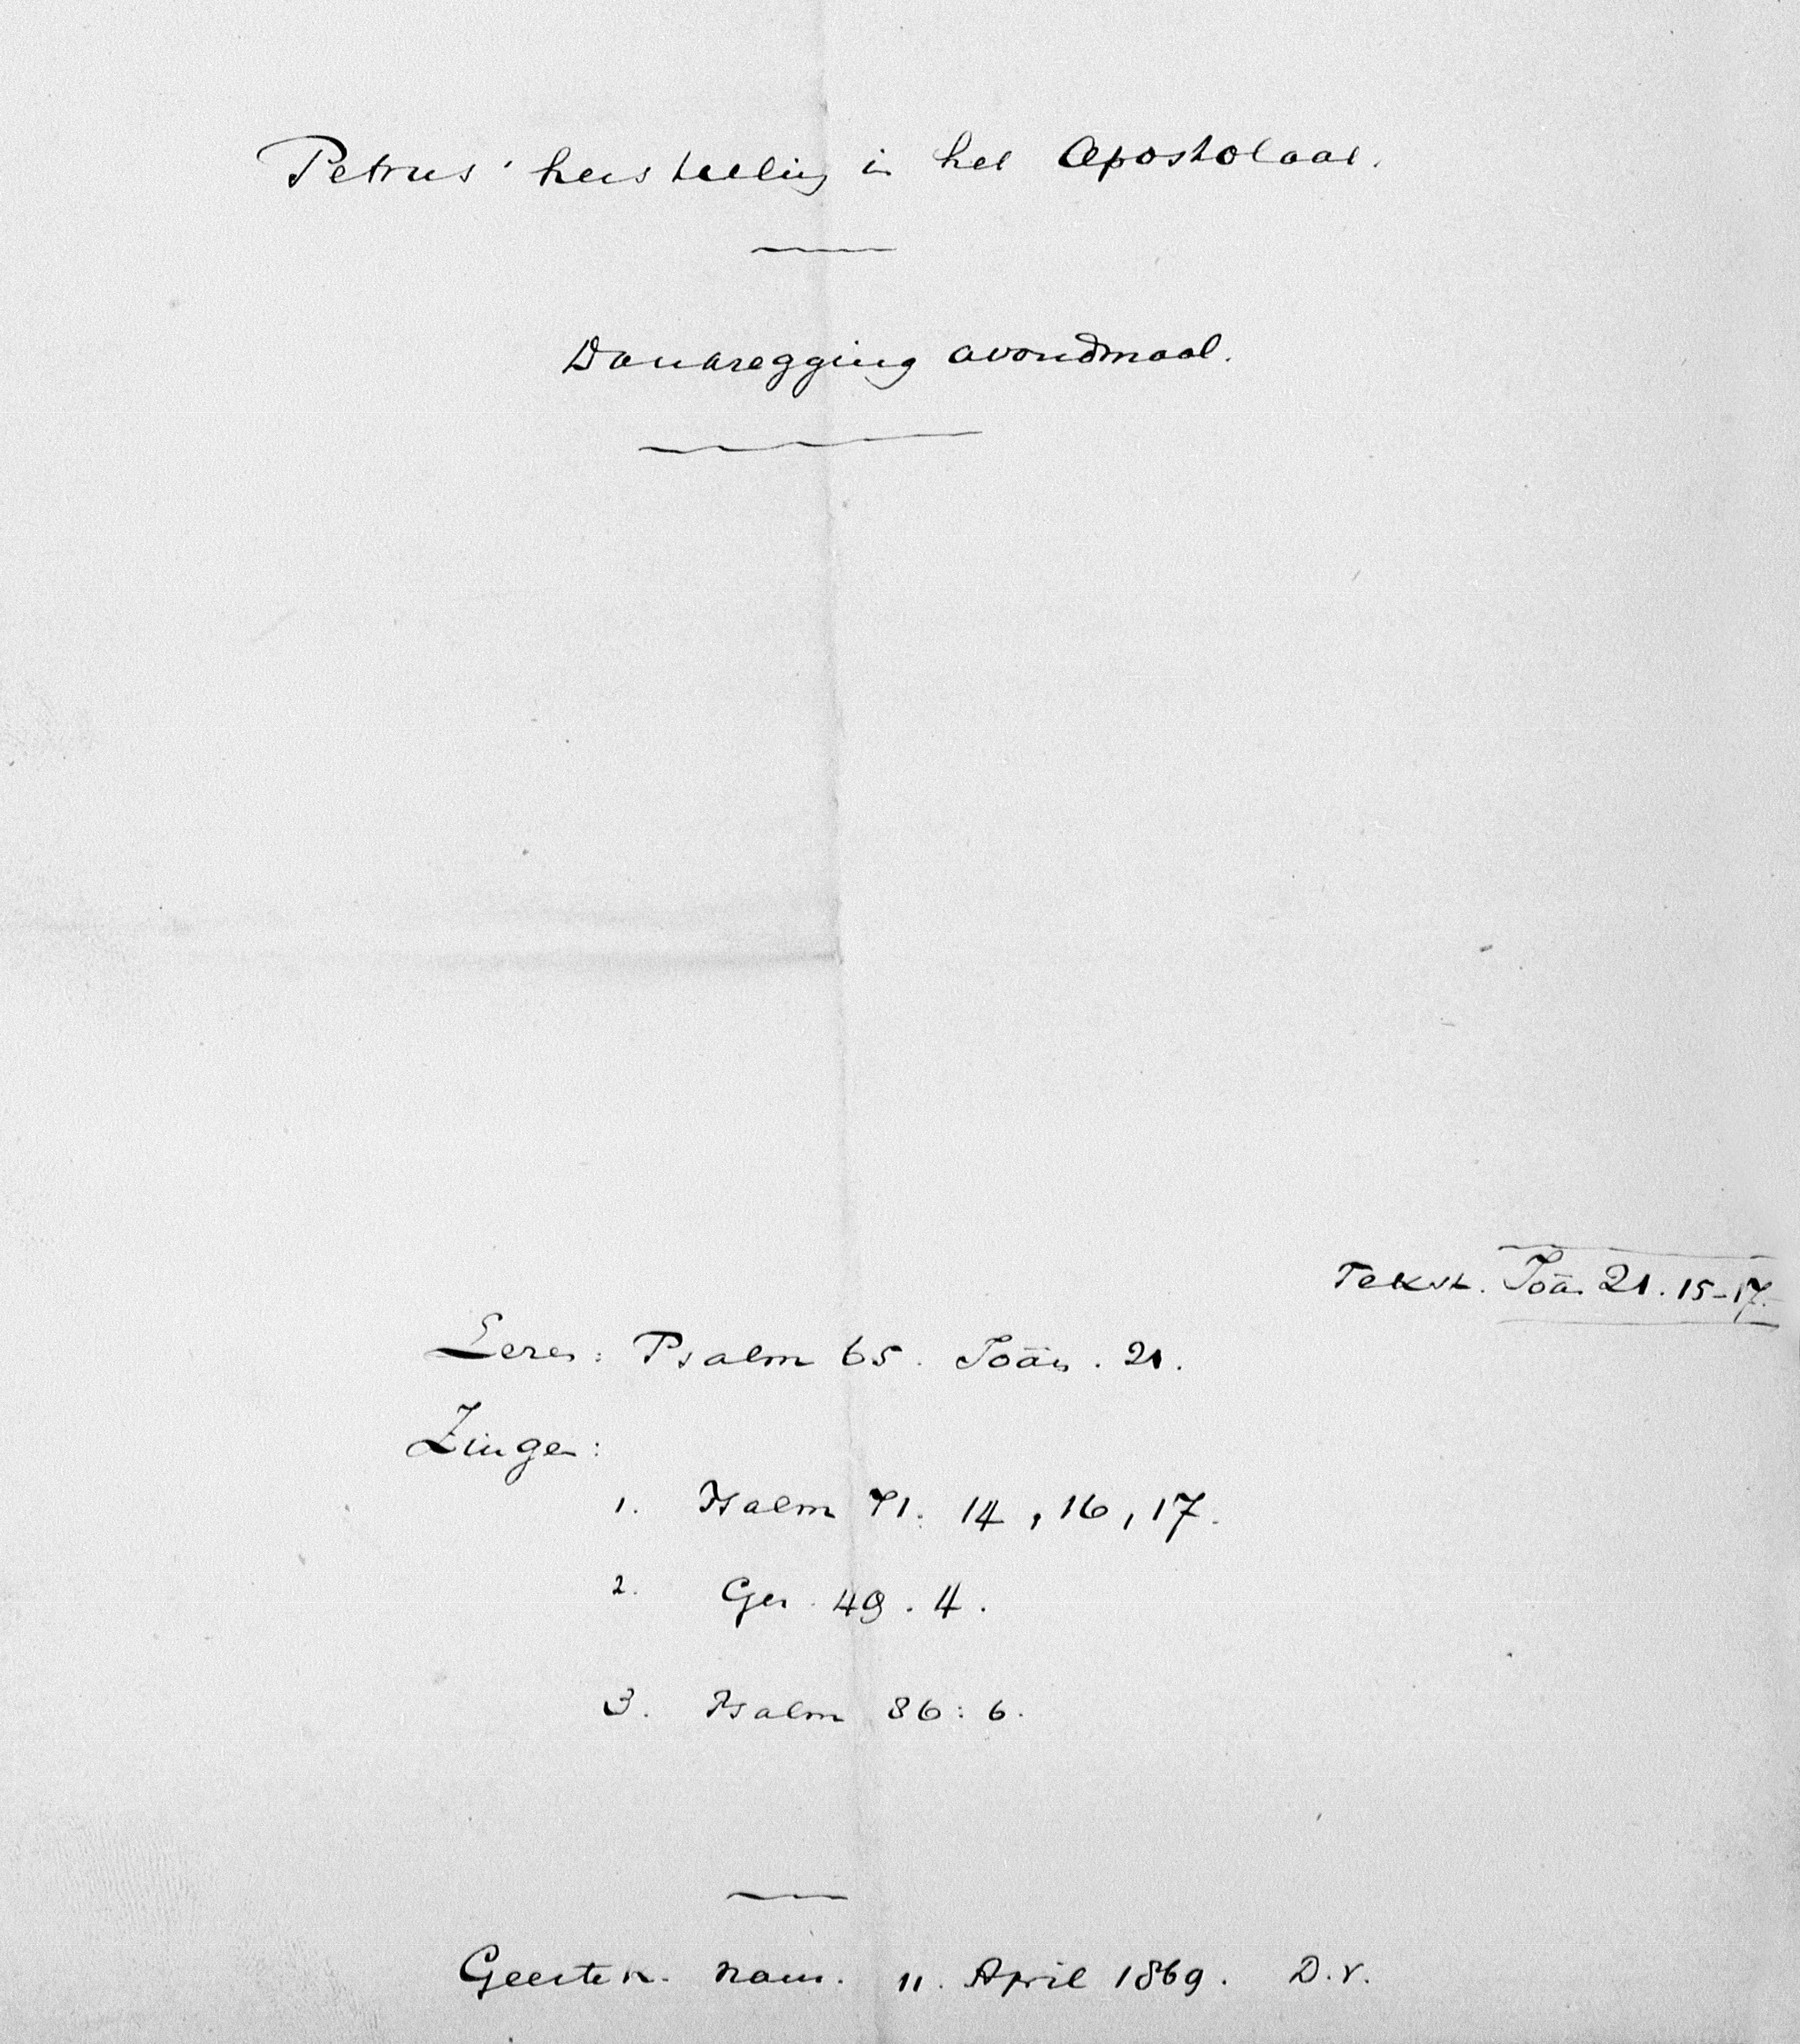 Petrus' herstelling in het Apostolaat.
Dankzegging avondmaal.
Tekst. Joä. 21. 15-17.
Lezen: Psalm 65. Joän. 21.
Zingen:
1. Psalm 71: 14, 16, 17.
2. Gez. 49. 4.
3. Psalm 86: 6.
Geertek. nam. 11. April 1869. D.V.